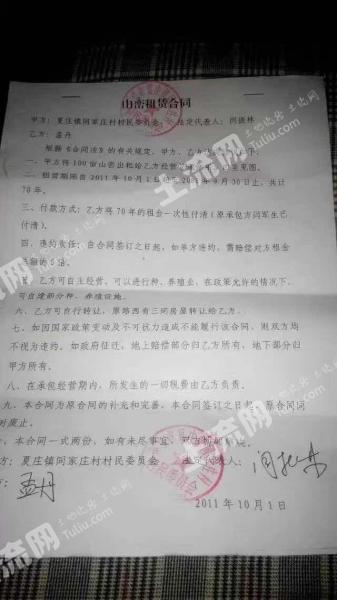 山峦租赁合同
甲方：夏庄镇闫家庄村村民委员会 法定代表人：闫振林
乙方：孟丹
根据《合同法》的有关规定，甲方、乙方
一、甲方将100亩山峦出租给乙方经营
二、租赁期限自2011年10月1日 年9月30日止，共计
70年。
三、付款方式：乙方将70年的租金一次性付清（原承包方闫军生已
付清）。
四、违约责任：自合同签订之日起，如单方违约，需赔偿对方租金
总额的5倍。
五、乙方可自主经营，可以进行种、养殖业，在政策允许的情况下，
可自建部分种、养殖设施。
六、乙方可自行转让，原路西有三间房屋转让给乙方。
七、如因国家政策变动及不可抗力造成不能履行该合同，则双方均
不视为违约。如政府征迁，地上赔偿部分归乙方所有，地下部分归
甲方所有。
八、在承包经营期内，所发生的一切税费由乙方负责。
九、本合同为原合同的补充和完善，本合同签订之日起，原合同同
时废止。
十、本合同一式两份，如有未尽事宜，双方协商解决。
方：夏庄镇闫家庄村村民委员会 法定代表人：
方：孟丹
2011年10月1日
土流网
Tuliu.com
土地流转 土流网
Tuliu.com